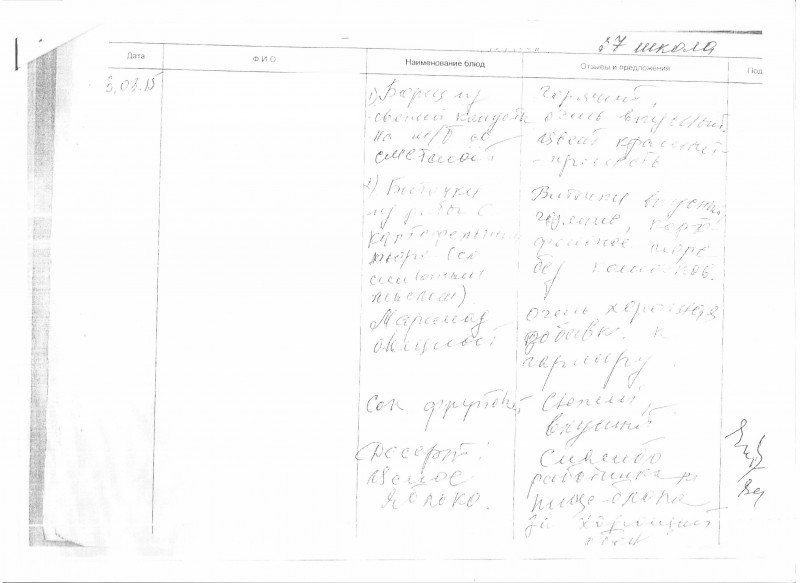 37 школа
Дата Ф.И.О. Наименование блюд Отзывы и предложения Под
3.03.15
1) Борщ из
свежей капусты
на м/б со
сметаной
горячий,
очень вкусный
цвет
прелесть
2) Биточки
из рыбы с
картофельным
пюре (со
сливочным
маслом)
Биточки вкусные
горячие, карто
фельное пюре
без комочков.
Маринад
овощной
очень хорошая
добавка к
гарниру.
Сок фруктовый
свежий,
вкусный
Десерт:
целое
яблоко.
Спасибо
работникам
пищеблока
за хороший
обед